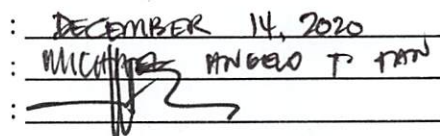 : DECEMBER 14, 2020
: MICHAEL ANGELO T TAN
: